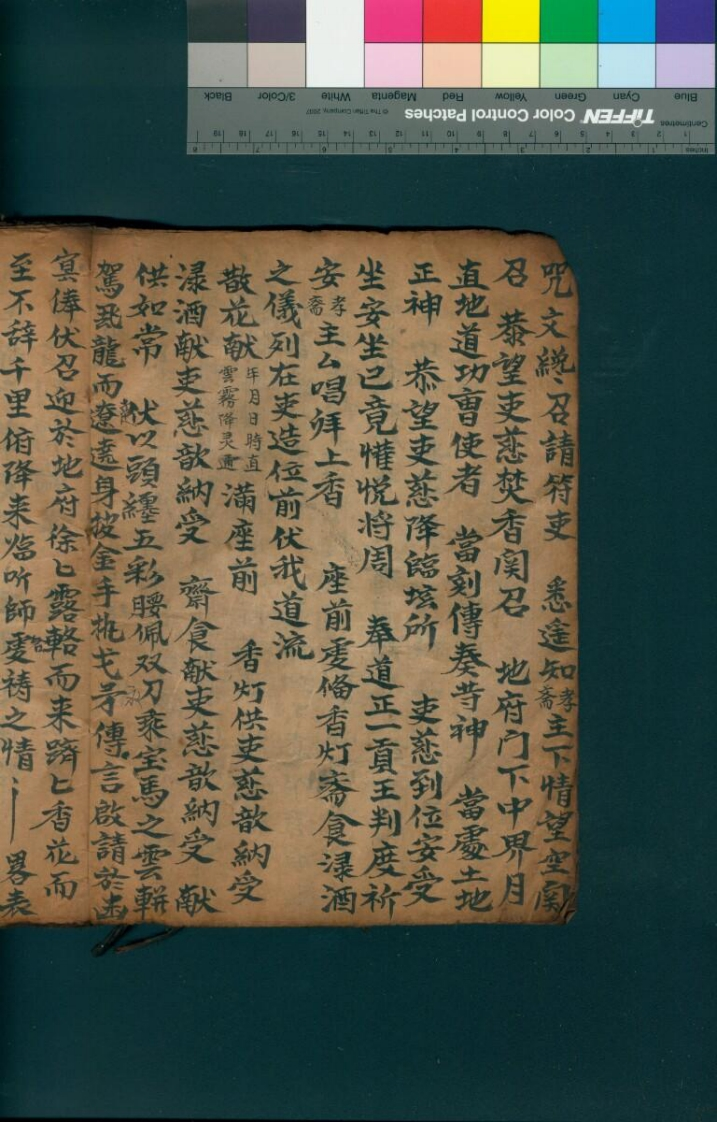 Blue Cyan Green Yellow Red Magenta White 3/Color Black
Centimetres TIFFEN Color Control Patches © The Tiffen Company, 2007
Inches
咒文纔〻召請符吏 悉遥知孝斎主下情望空関
召 恭望吏慈焚香関召 地府门下中界月
直地道功曹使者 當刻傳奏苛神 當處土地
正神 恭望吏慈降臨坛所 吏慈到位安受
坐安坐已竟懽悦将周 奉道正一貢王判度祈
安孝斎主厶唱拜上香 座前虔俻香灯斋食渌酒
之儀列在吏造位前伏我道流
散花献年月日時直雲霧降灵通滿座前 香灯供吏慈歆納受
渌酒献吏慈歆納受 齋食献吏慈歆納受 献
供如常 伏以頭纏五彩腰佩双刀乘宝馬之雲軿
駕龍而遼遠身披金手执戈矛傳言啟請於幽
寘俸伏召迎於地府徐匕露輅而来躋匕香花而
至不辞千里俯降来临听師虔祷之情 畧表